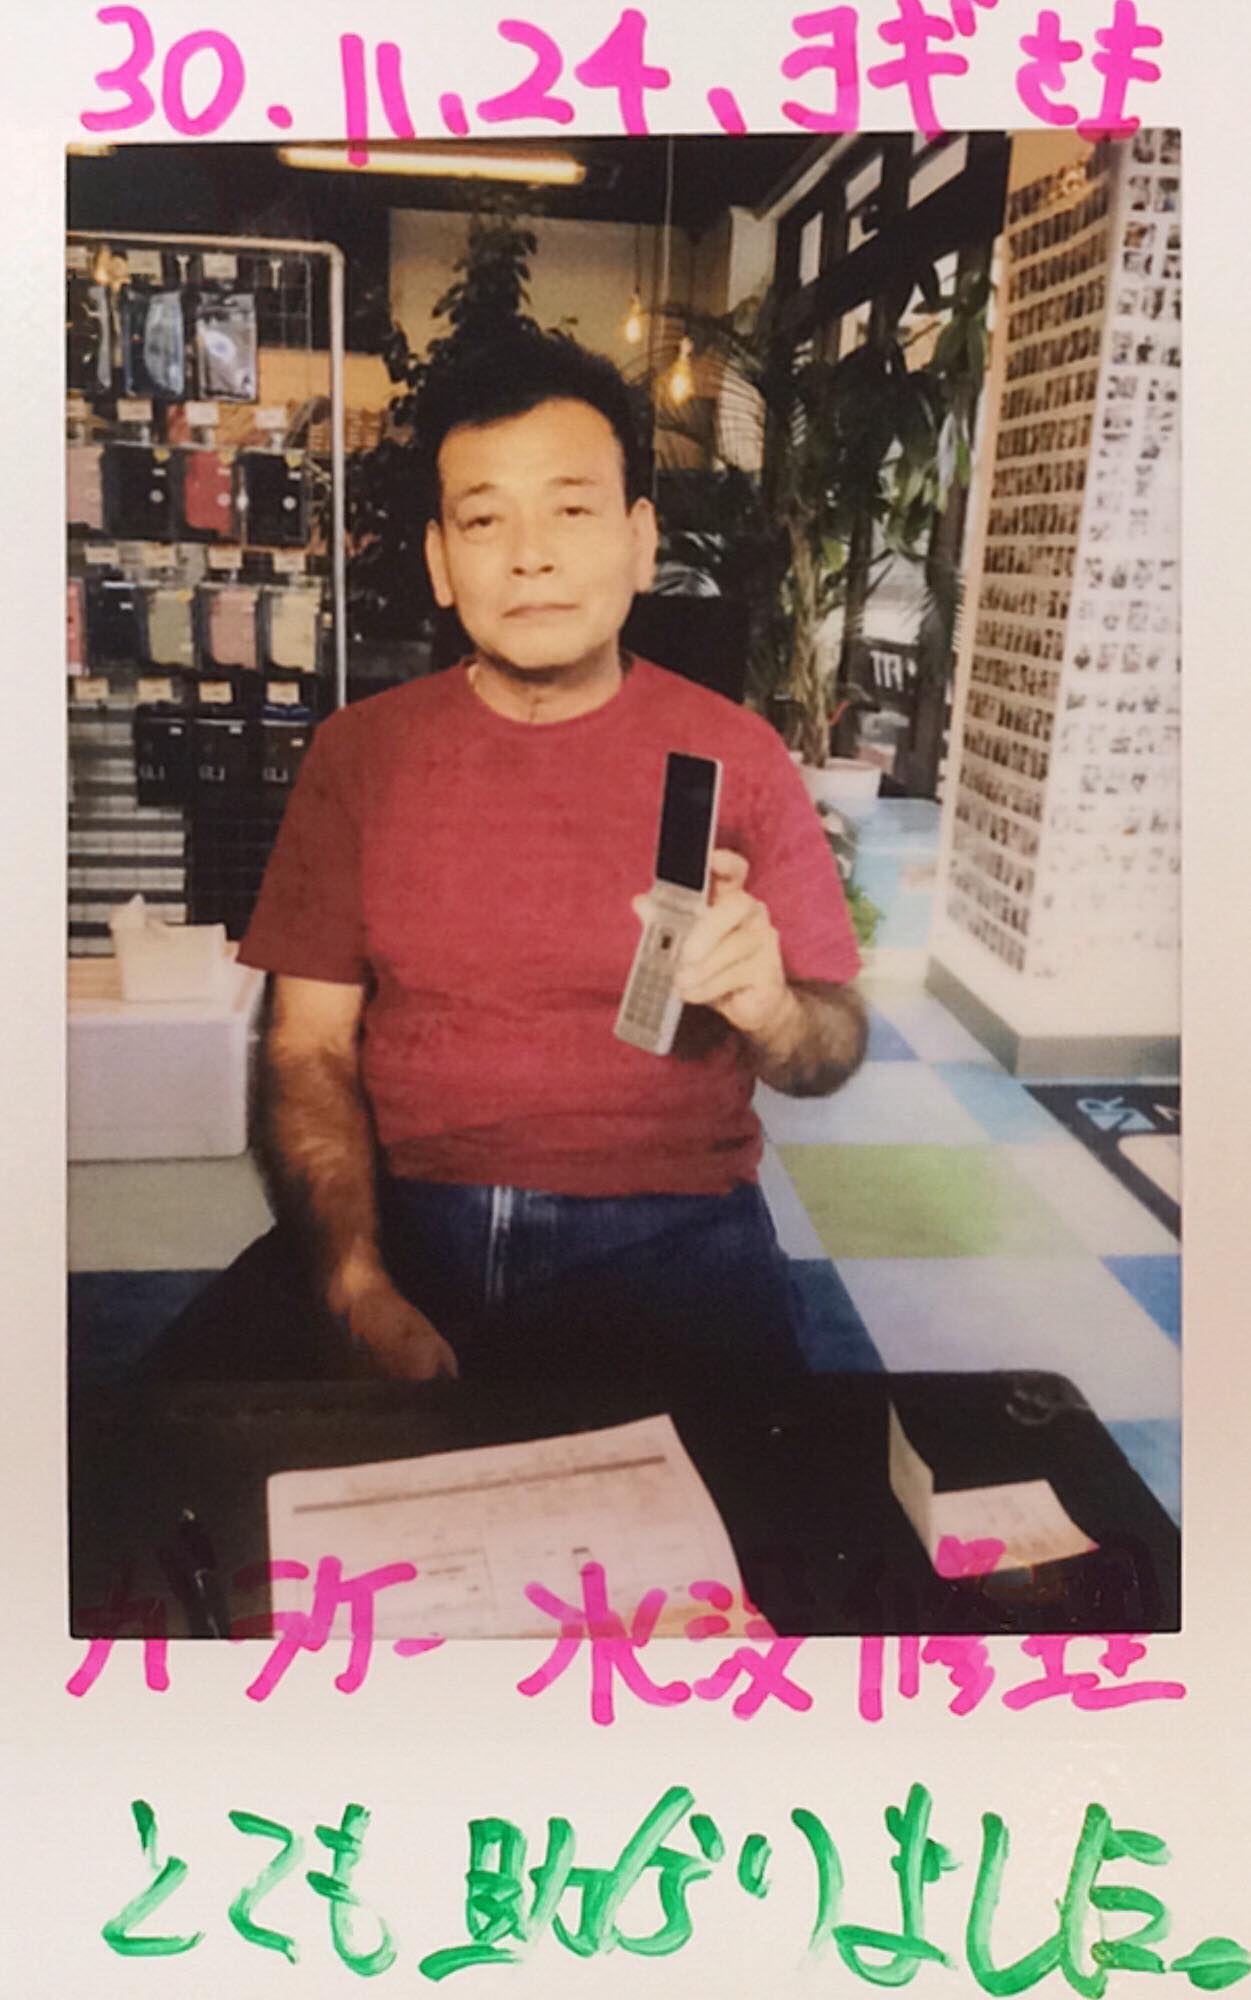 30.11.24、ヨギさま
ガラケー水没修理
とても助かりました。